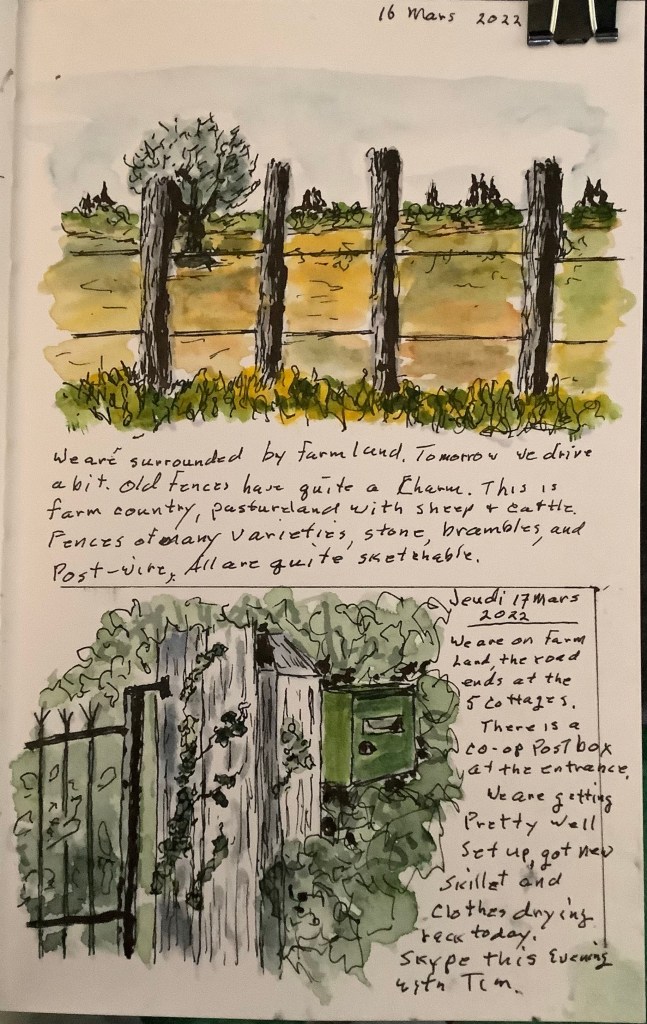 16 Mars 2022
We are surrounded by farmland. Tomorrow we drive
a bit. Old Fences have quite a Charm. This is
farm country, pastureland with sheep & cattle.
Fences of many varieties, stone, brambles, and
Post-wire, All are quite sketchable.
Jeudi 17 Mars
2022
We are on Farm
Land, the road
ends at the
5 Cottages.
There is a
co-op Post box
at the entrance.
We are getting
Pretty well
Set up, got new
Skillet and
Clothes drying
rack today.
Skype this Evening
with Tim.